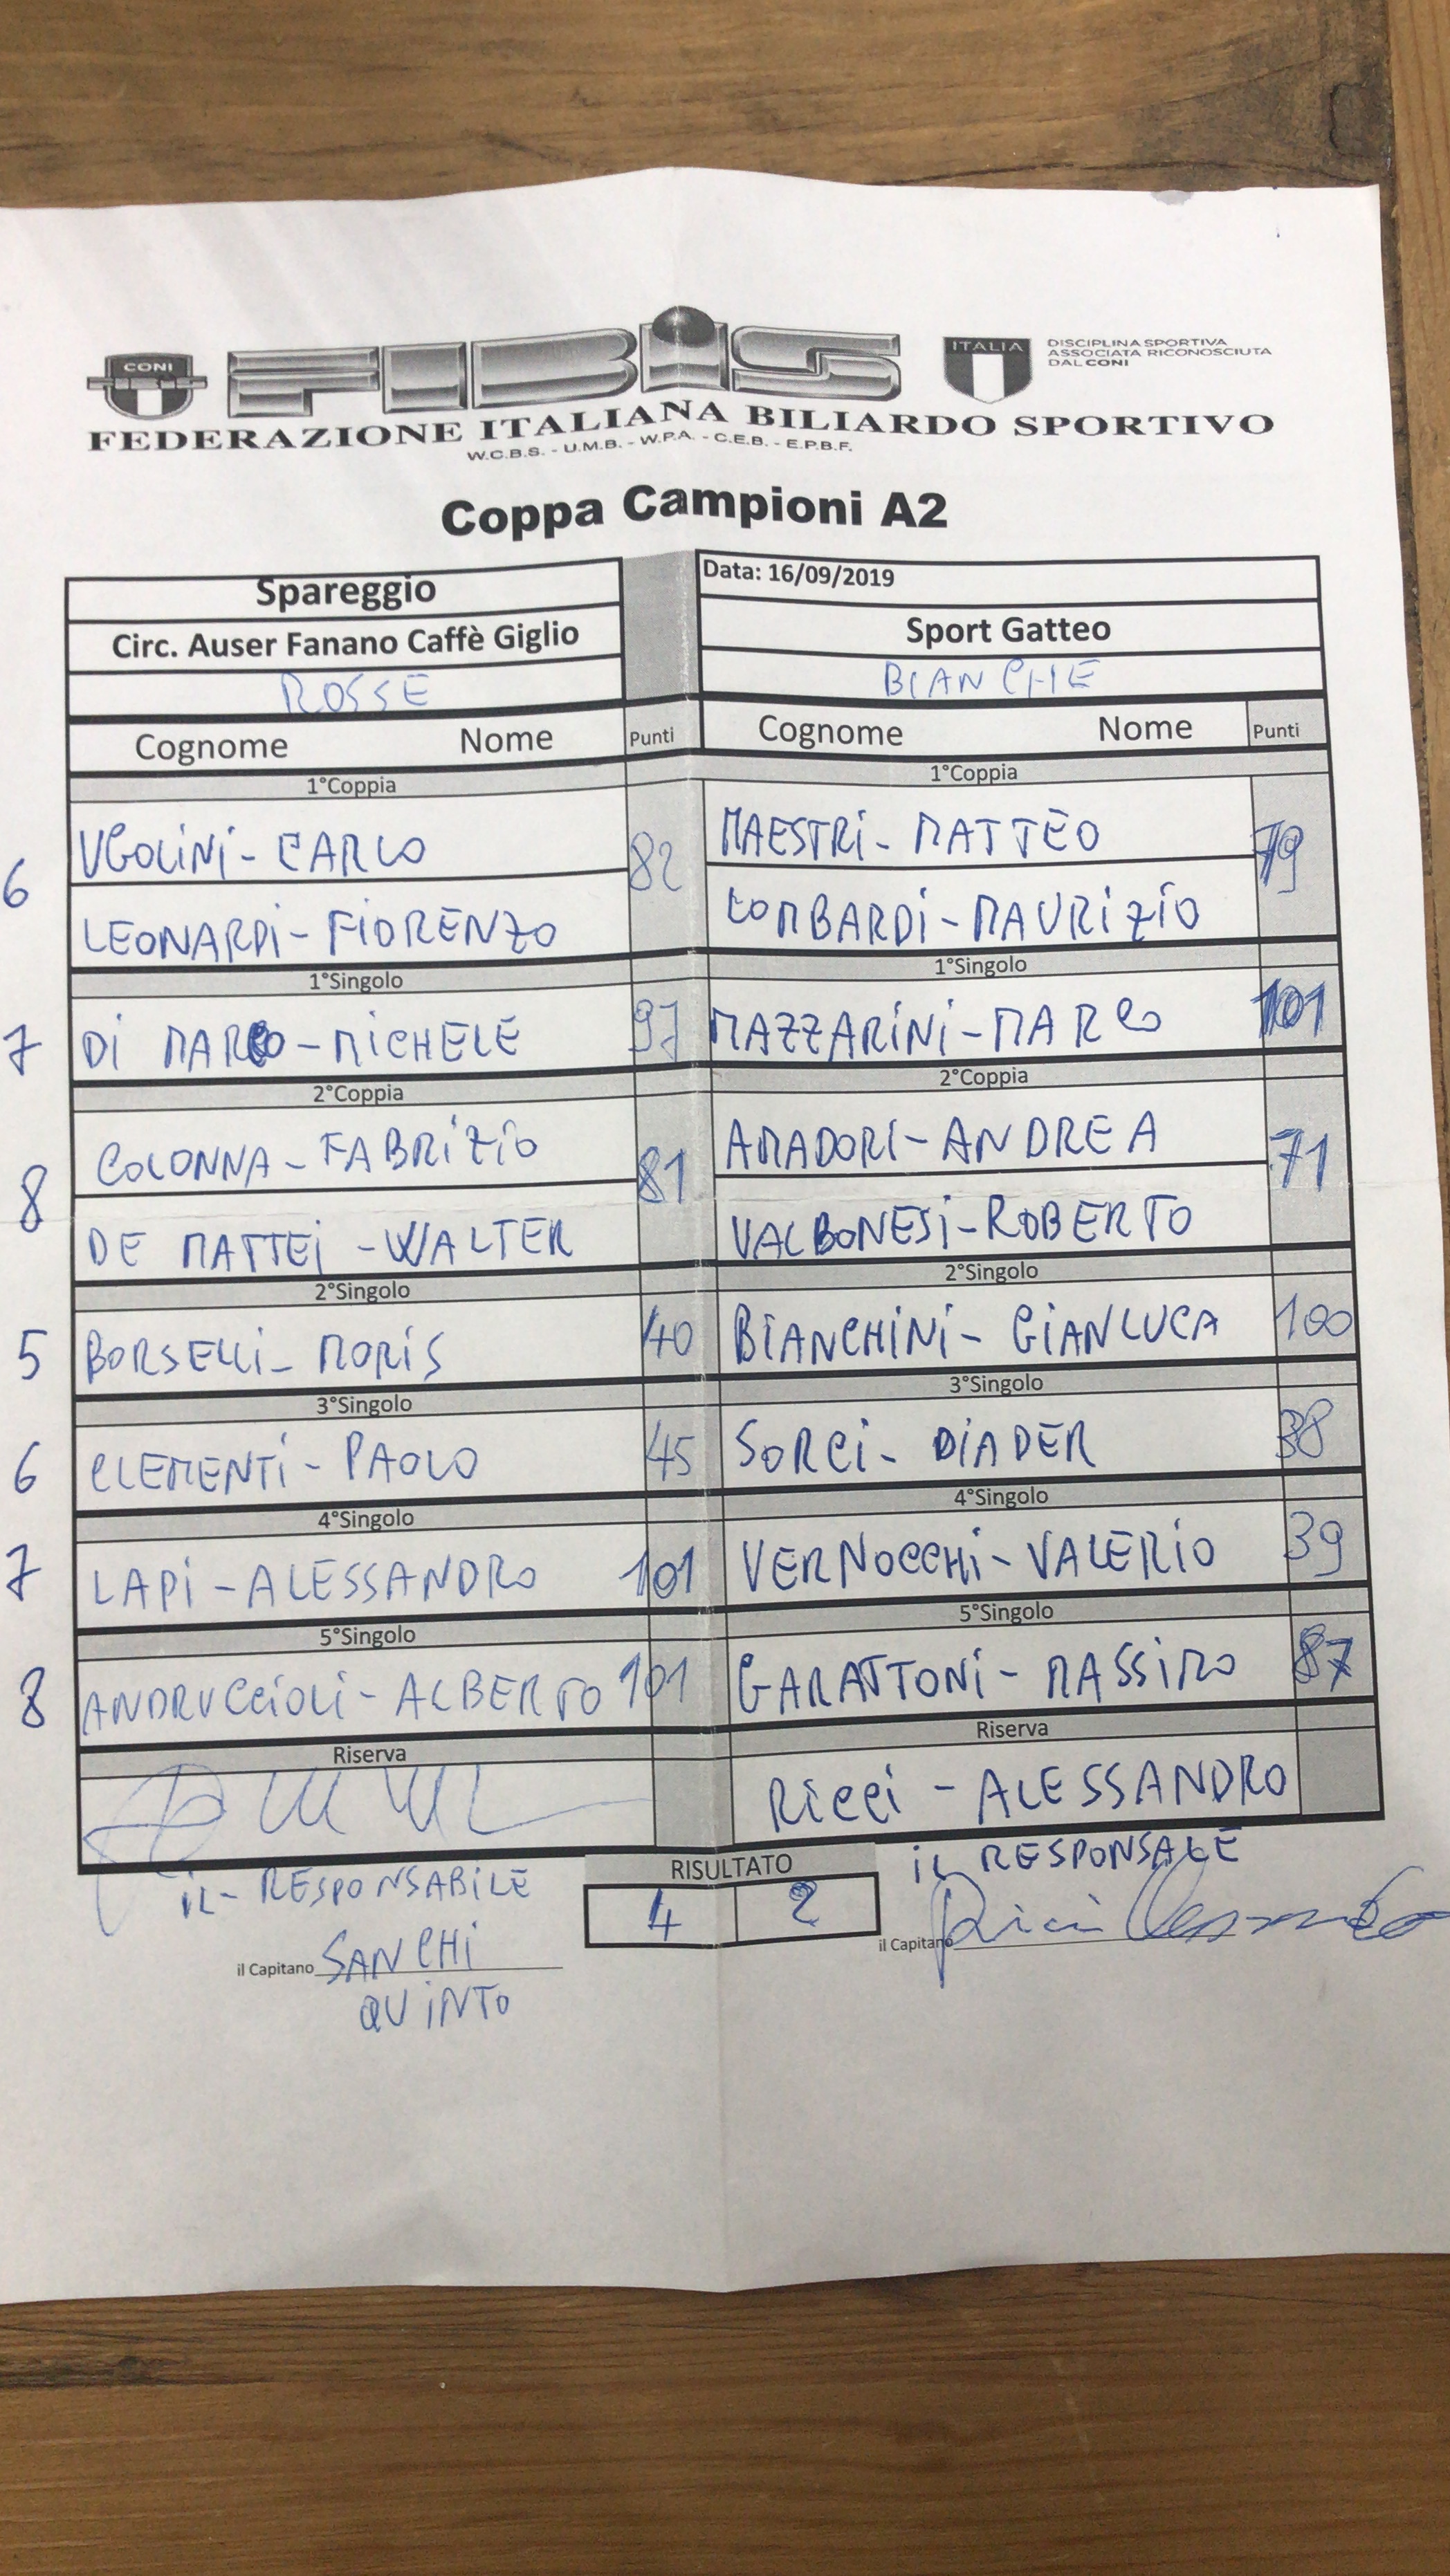 CONI
FIBiS
ITALIA
DISCIPLINA SPORTIVA
ASSOCIATA RICONOSCIUTA
DAL CONI
FEDERAZIONE ITALIANA BILIARDO SPORTIVO
W.C.B.S. - U.M.B. - W.P.A. - C.E.B. - E.P.B.F.
Coppa Campioni A2
Spareggio Data: 16/09/2019
Circ. Auser Fanano Caffè Giglio Sport Gatteo
ROSSE BIANCHE
Cognome Nome Punti Cognome Nome Punti
1°Coppia 1°Coppia
6 UGOLINI - CARLO 82 MAESTRI - MATTEO 79
LEONARDI - FIORENZO LOMBARDI - MAURIZIO
1°Singolo 1°Singolo
7 DI MARCO - MICHELE 97 MAZZARINI - MARCO 101
2°Coppia 2°Coppia
8 COLONNA - FABRIZIO 81 AMADORI - ANDREA 71
DE MATTEI - WALTER VALBONESI - ROBERTO
2°Singolo 2°Singolo
5 BORSELLI - MORIS 40 BIANCHINI - GIANLUCA 100
3°Singolo 3°Singolo
6 CLEMENTI - PAOLO 45 SORCI - DIADER 38
4°Singolo 4°Singolo
7 LAPI - ALESSANDRO 101 VERNOCCHI - VALERIO 39
5°Singolo 5°Singolo
8 ANDRUCCIOLI - ALBERTO 101 GARATTONI - MASSIMO 87
Riserva Riserva
RICCI - ALESSANDRO
IL - RESPONSABILE RISULTATO IL RESPONSALE
4 2
il Capitano SANCHI il Capitano Ricci Alessandro
QUINTO